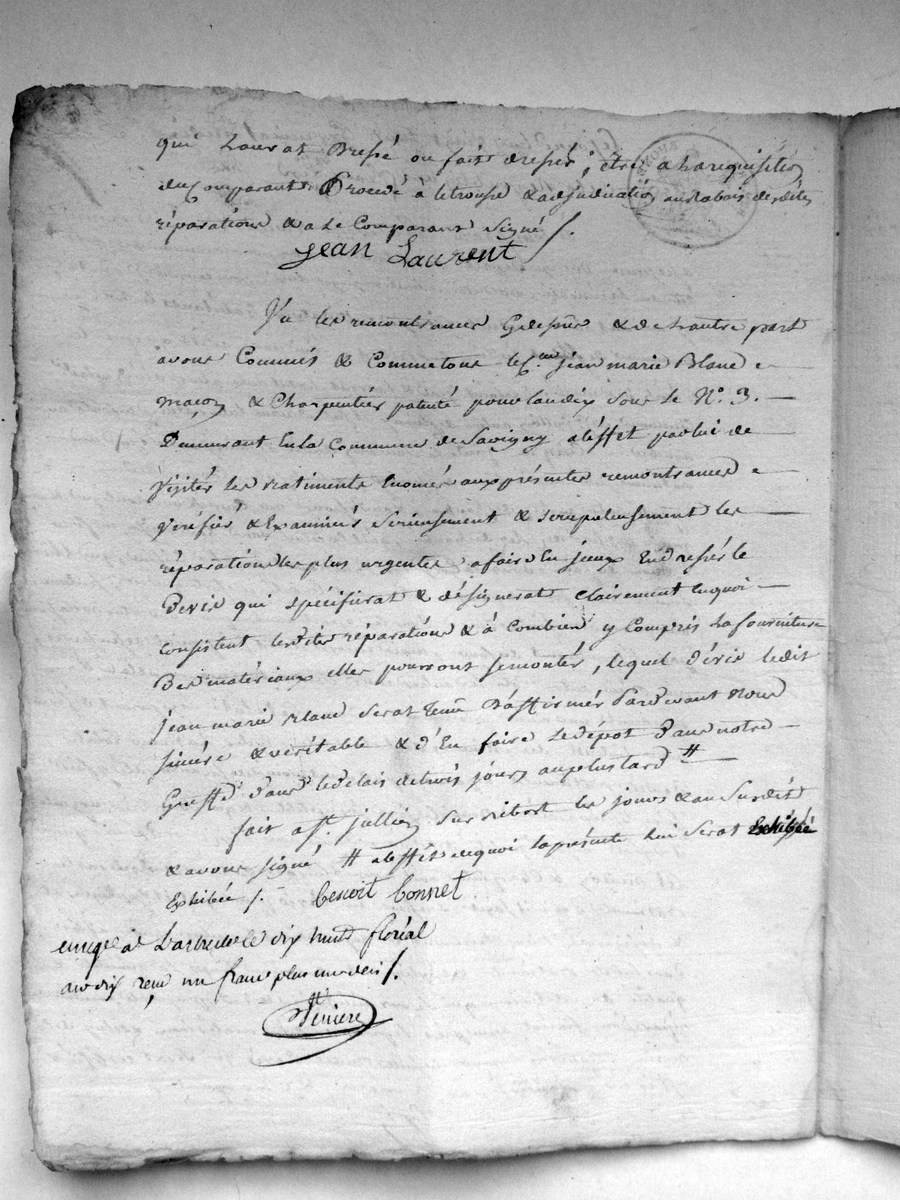 qui Laurat Dressé ou fait dressér, être a la requisition
du Comparant Procedé à letrousse & adjudication au Rabais desdites
réparations & a le Comparant signé /.
jean Laurent
Vu les remontrances & de L'autre part
avons Commis & Commetons le Cen. jean marie Blanc
macon & Charpentier patenté pour lan dix sous le No. 3.
Demeurant En la Commune de Savigny a l'éffet par lui de
Visitér les Batiments Enomés aux présentes remontrances
Verifiér & Examinér Serieusement & scrupuleusement les
réparations les plus urgentes a faire En jeux En dressér le
Devis qui spécifierat & désignerat clairement En quoi
consistent lesdites réparations & à Combien y Compris La fourniture
Des matériaux elles pourront se montér, lequel Dévis ledit
jean marie Blanc Serat tenu D'affirmér Pardevant Nous
sincére & véritable & d'En faire le Dépot Dans notre
Greffe Dans le delais de trois jours au plus tard #
fait a St. jullien sur Bibost les jours & an Susdits
& avons signé # a leffet de quoi la présente lui Serat Exhibée
Exhibée /. benoit bonnet
enregé a L'arbresle le dix huit floréal
an dix reçu un franc plus un deci /.